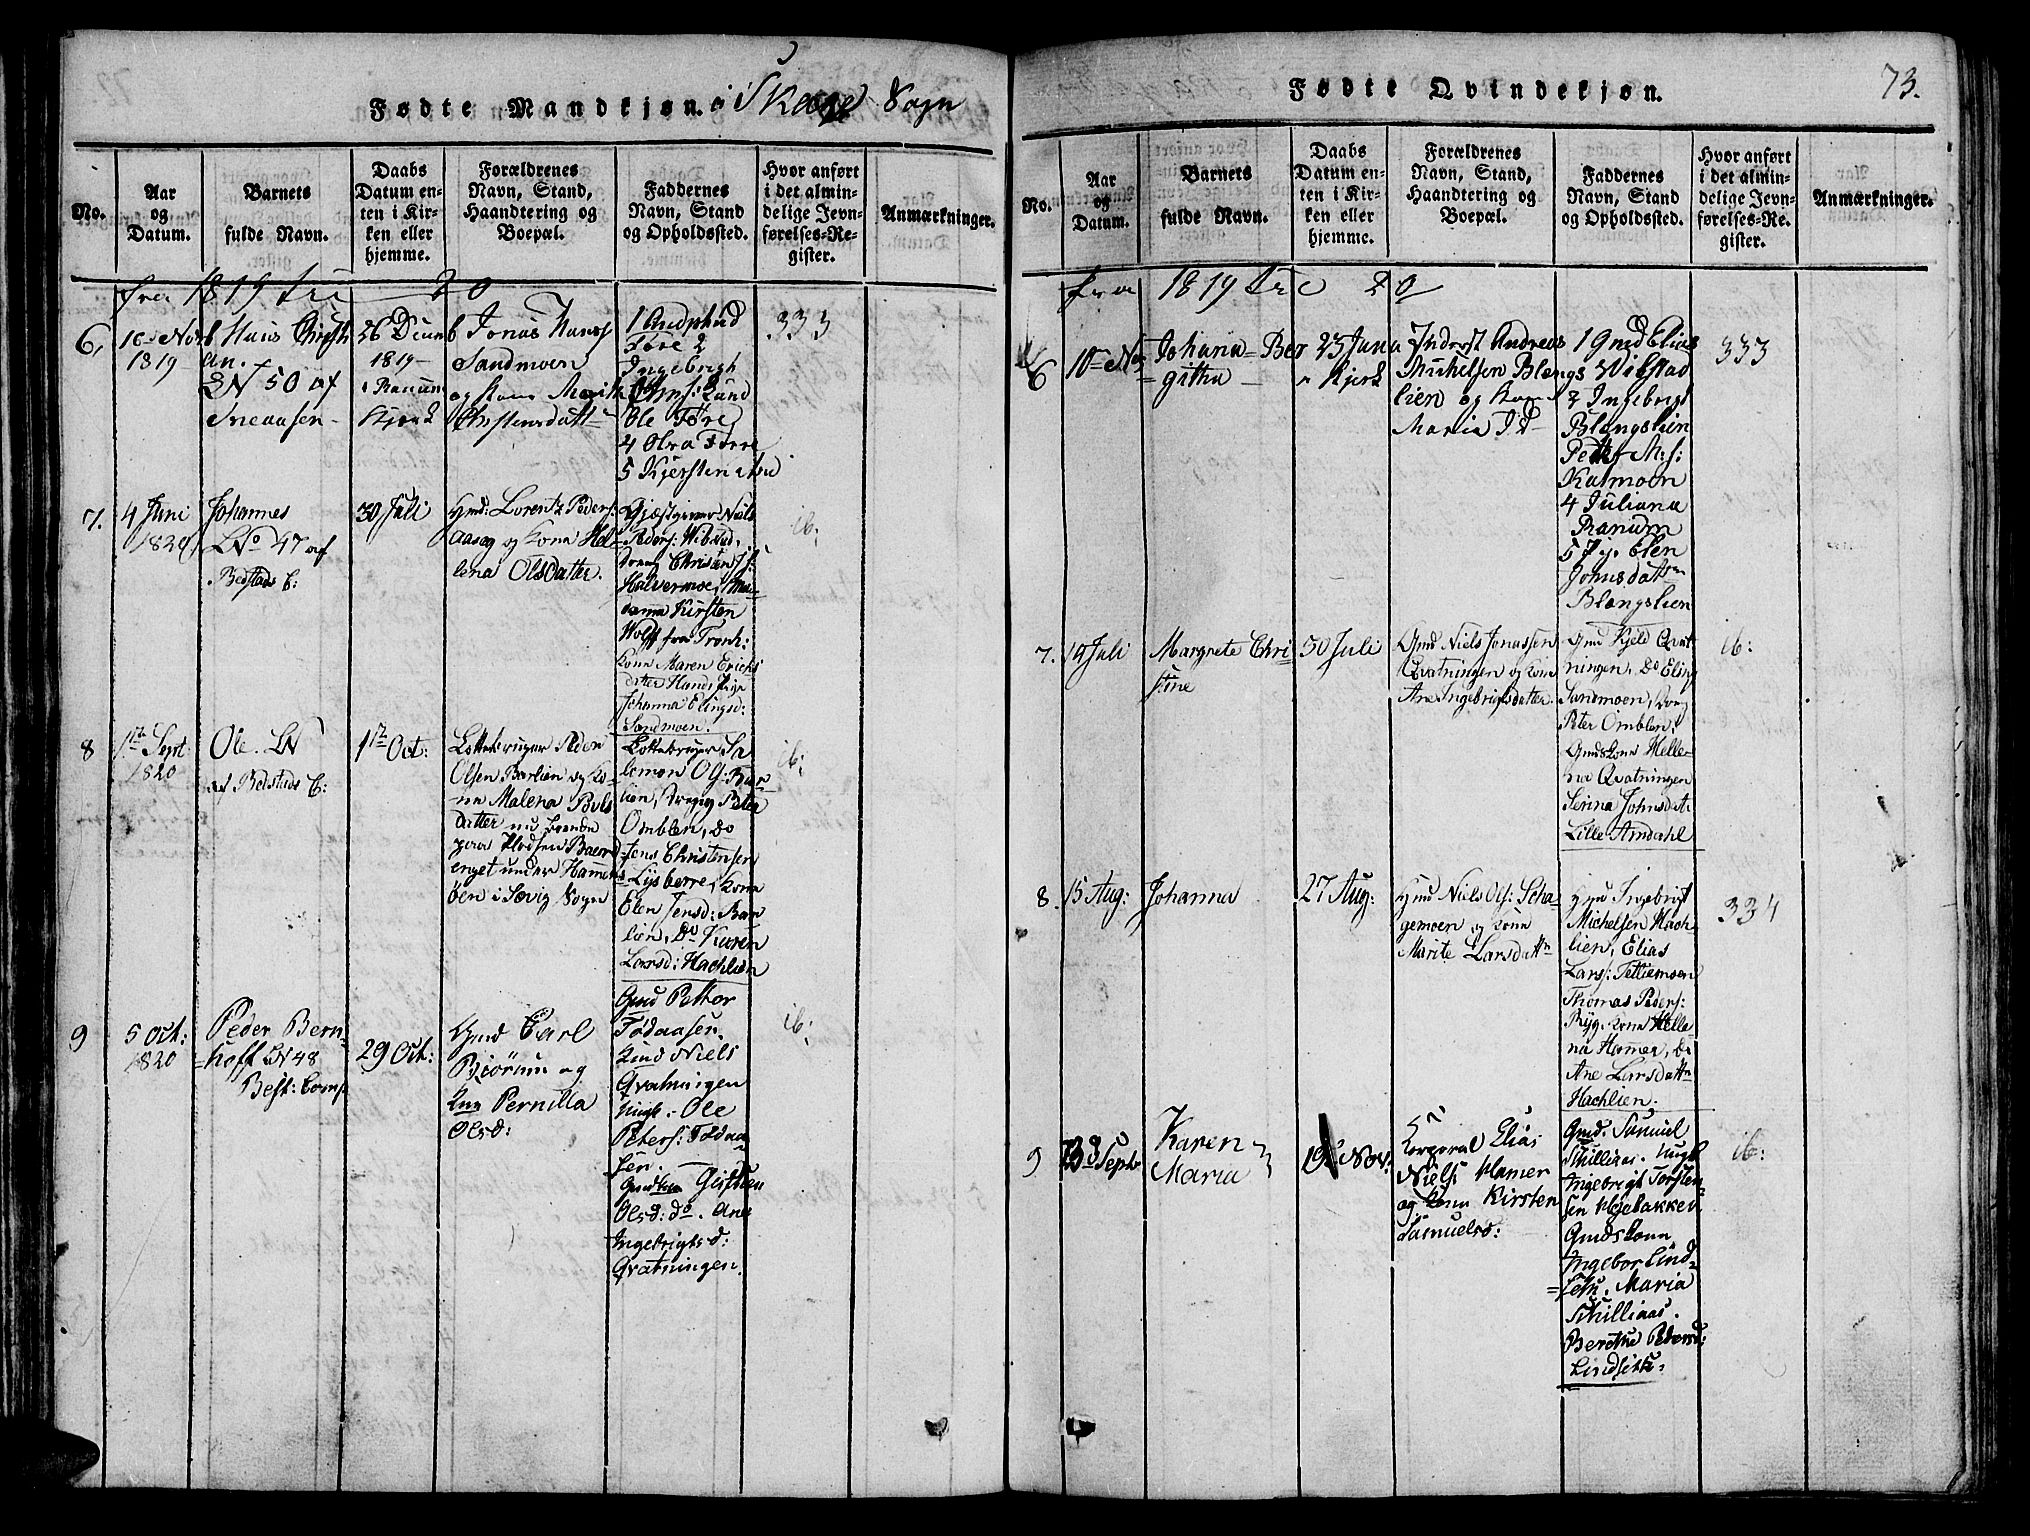 Fødte Mandkjøn. i Skage Sogn
No.
Aar
og
Datum.
Barnets
fulde Navn.
Daabs
Datum en-
ten i Kir-
ken eller
hjemme.
Forældrenes
Navn, Stand,
Haandtering og
Boepæl.
Faddernes
Navn, Stand
og Opholdssted.
Hvor anført
i det almin-
delige Jevn-
førelses-Re-
gister.
Anmærkninger.
fra 1819 til 20
6,
16 Novb
1819
Hans Christi
an.
LN 50 af
Sneaasen
26 Decemb
1819
i Ranum
Kjerk
Jonas Hans
Sandmoen
og Kone Marith
Christensdatt
Førre 2
Ingebrigh
Ole Førre
4 Olva Førre
5 Kjersten
333
7.
4 Juni
1820
Johannes
LNo 47 af
Bedstads C:
30 Juli
Gmd: Lorentz Peders:
Aasog og Kona Hel
lena Olsdatter.
Gjæstgiver Niels
Peders: Wibstad,
Dreng Christen J S:
Halvermoe, Ma-
dame Kirsten
Wolff fra Tronh:
Kona Maren Erichs
datter
Johanna Elingsd:
Sandmoen.
ib:
8
17 Sept:
1820
Ole. LN
af Bedstads C:
1te Oct:
Peder
Olsen Barlien og Ko-
na Malena Povls
datter
enget under Hammer
øen i Sævig Sogn
Sa
lemon Ols: Bar-
lien, Dreng Peter
Omblen, Do
Jens Christensen
Lysberre, Kona
Elen Jensd: Bar
lien, Do Karen
Larsd: Hachlien
ib:
9
5 Oct:
1820
Peder Bern-
hoff LN 48
Best: Comp.
29 Oct:
Gmd Carl
Biörum og
Kona Pernilla
Olsd:
Gmd Petter
Fodaasen.
Niels
Qvatningen
Ungk. Ole
Peters: Fodaa-
sen.
Olsd: do. Ane
Ingebrigtsd:
Qvatningen.
ib:
Fødte Qvindekjøn.
73.
No.
Aar
og
Datum.
Barnets
fulde Navn.
Daabs
Datum en-
ten i Kir-
ken eller
hjemme.
Forældrenes
Navn, Stand,
Haandtering og
Boepæl.
Faddernes
Navn, Stand
og Opholdssted.
Hvor anført
i det almin-
delige Jevn-
førelses-Re-
gister.
Anmærkninger.
fra 1819 til 20
6
10de Nov
Johana Ber
githa
23 Janu
i Kjerk
Inderst Andreas
Michelsen Blengs
lien og Kone
Maria J D
1 Gmd Elias
Wibstad
2 Ingeborg
Blengslien
Petter
Kalmoen
4 Juliana
Ranum
5 Pig. Elen
Johnsdattr
Blengslien
333
7.
19 Juli
Margrete Chri
stine
30 Juli
Gmd Niels Jonassen
Qvatningen og Kone
Ane Ingebrigtsdatter.
Gmd Kjeld Qvat
ningen, Do Eling
Sandmoen, Dreng
Peter Omblen,
Gmdskone Helle-
na Qvatningen
Serina Johnsdat.
Lille Amdahl
ib:
8.
15 Aug:
Johanna
27 Aug:
Gmd Niels Ols: Scha-
gemoen og Kone
Marite Larsdattr
Gmd Ingebrigt
Michelsen Hach-
lien, Elias
Lars: Tetliemoen
Thomas Peders:
Ryg. Kona Helle
na Hammer, Do
Ane Larsdattr
Hachlien.
334
9
Septr
Karen
Maria
19 Nov.
Corporal Elias
Niels: Hamer
og Kone Kirsten
Samuelsd:
Gmd. Samuel
Skilliaas. Ungk
Ingebrigt Torsten-
sen Høibakken
Gmdskone
Ingebor Lind-
setu. Maria
Skilliaas.
Berethe Pedersd:
Lindsetu.
ib: